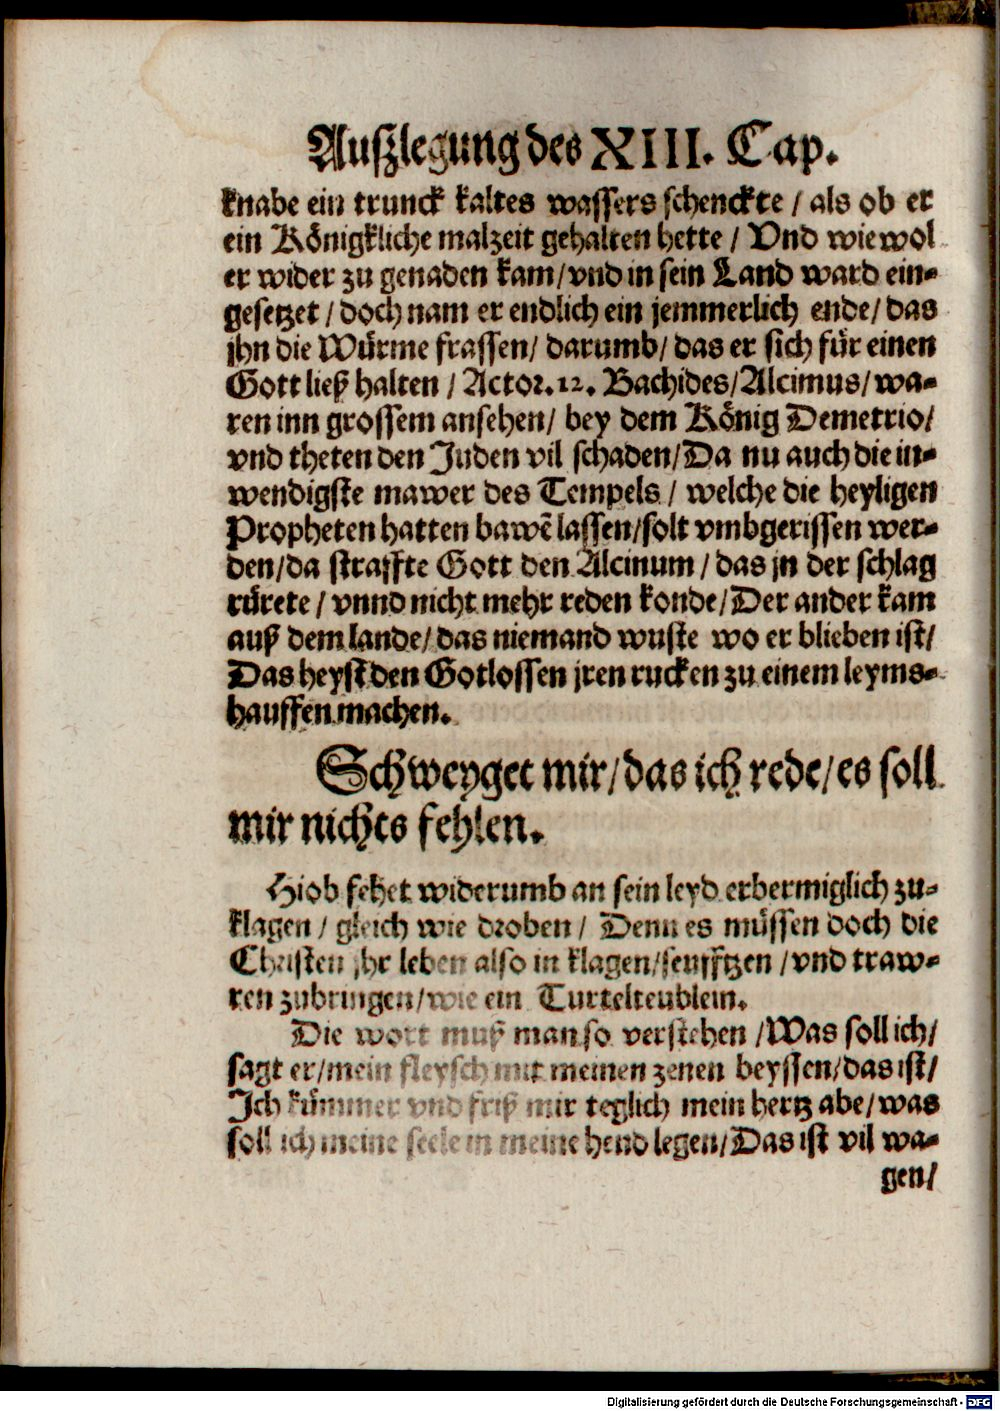 Auſzlegung des XIII. Cap.
knabe ein trunck kaltes waſſers ſchenckte / als ob er
ein Königkliche malzeit gehalten hette / Vnd wiewol
er wider zu genaden kam / vnd in ſein Land ward ein-
geſetzet / doch nam er endlich ein jemmerlich ende / das
jhn die Würme fraſſen / darumb / das er ſich für einen
Gott ließ halten / Actor. 12. Bachides / Alcimus / wa-
ren inn groſſem anſehen / bey dem König Demetrio /
vnd theten den Juden vil ſchaden / Da nu auch die in-
wendigſte mawer des Tempels / welche die heyligen
Propheten hatten bawẽ laſſen / ſolt vmbgeriſſen wer-
den / da ſtraffte Gott den Alcinum / das jn der ſchlag
rürete / vnnd nicht mehr reden konde / Der ander kam
auß dem lande / das niemand wuſte wo er blieben iſt /
Das heyſt den Gotloſſen jren rucken zu einem leyms-
hauffen machen.
Schweyget mir / das ich rede / es ſoll
mir nichts fehlen.
Hiob fehet widerumb an ſein leyd erbermiglich zu-
klagen / gleich wie droben / Denn es müſſen doch die
Chriſten jhr leben alſo in klagen / ſeufftzen / vnd traw-
ren zubringen / wie ein Turtelteublein.
Die wort muß man ſo verſtehen / Was ſoll ich /
ſagt er / mein fleyſch mit meinen zenen beyſſen / das iſt /
Ich kümmer vnd friß mir teglich mein hertz abe / was
ſoll ich meine ſeele in meine hend legen / Das iſt vil wa-
gen /
Digitalisierung gefördert durch die Deutsche Forschungsgemeinschaft - DFG